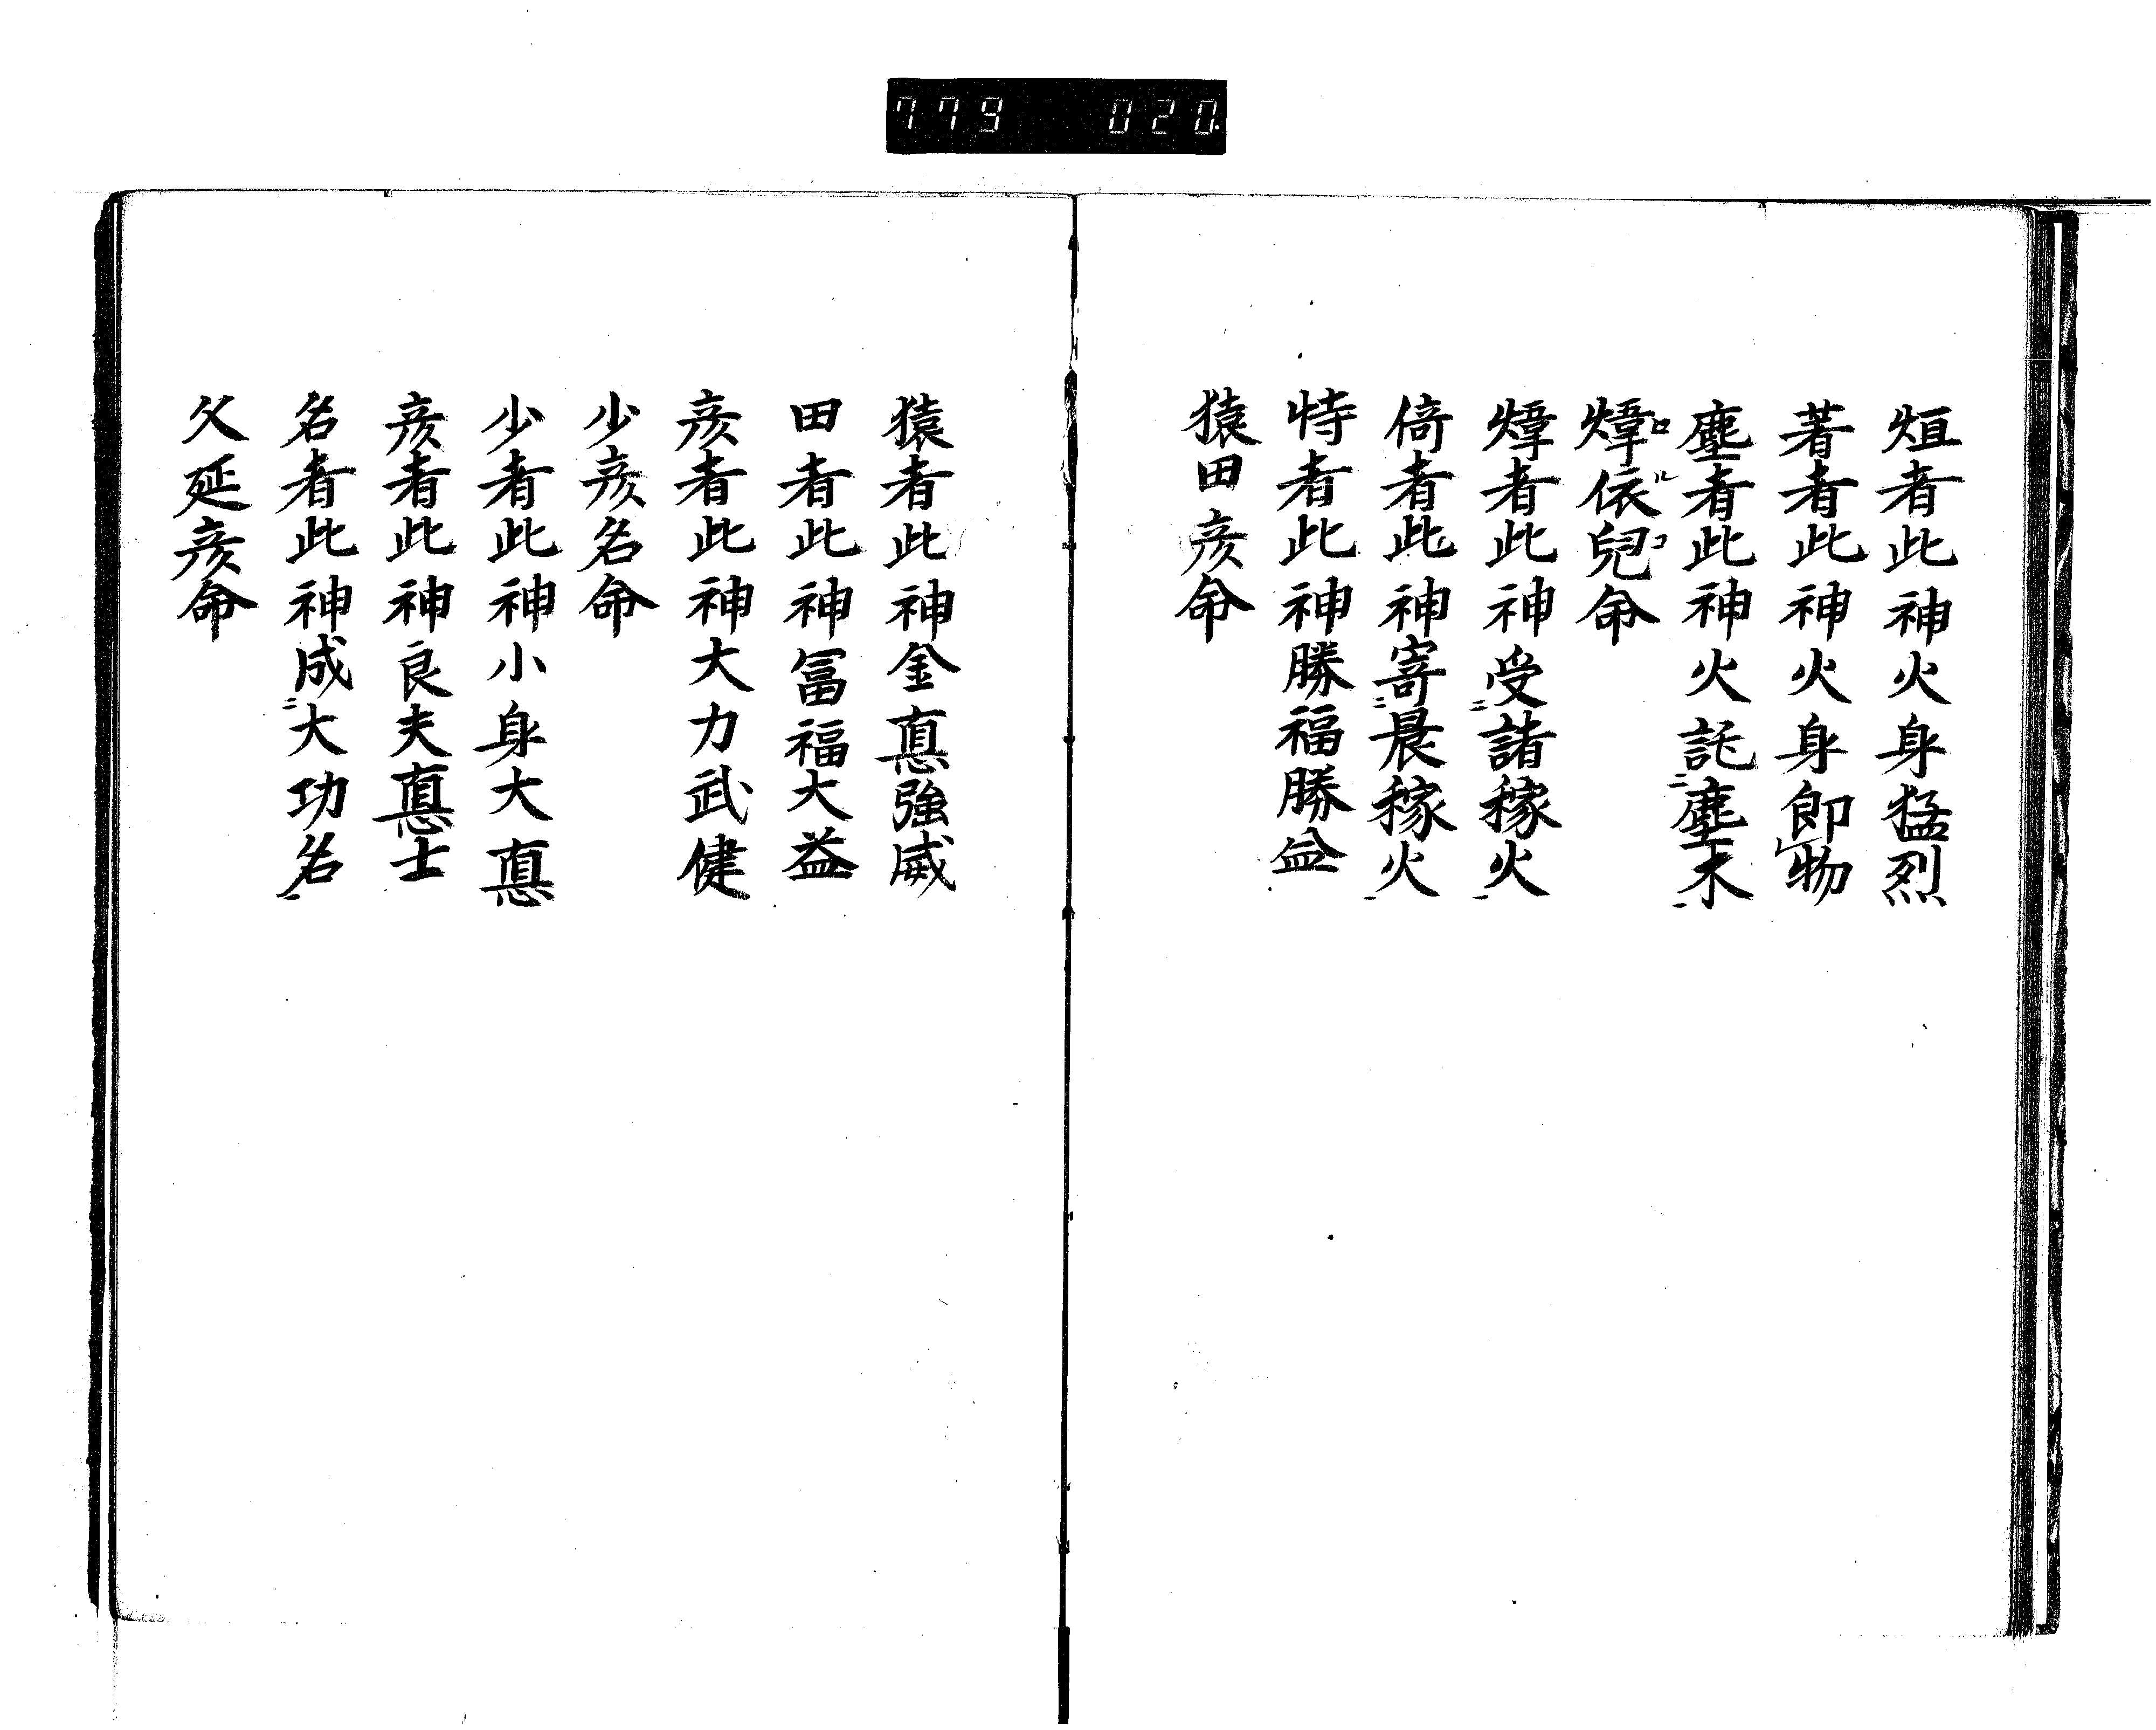 779 020
烜者此神火身猛烈
著者此神火身即物
塵者此神火託塵木
煒依兒命
煒者此神受諸稼火
倚者此神寄晨稼火
恃者此神勝福勝益
猿田彦命
猿者此神金悳強威
田者此神冨福大益
彦者此神大力武健
少彦名命
少者此神小身大悳
彦者此神良夫悳士
名者此神成大功名
父延彦命